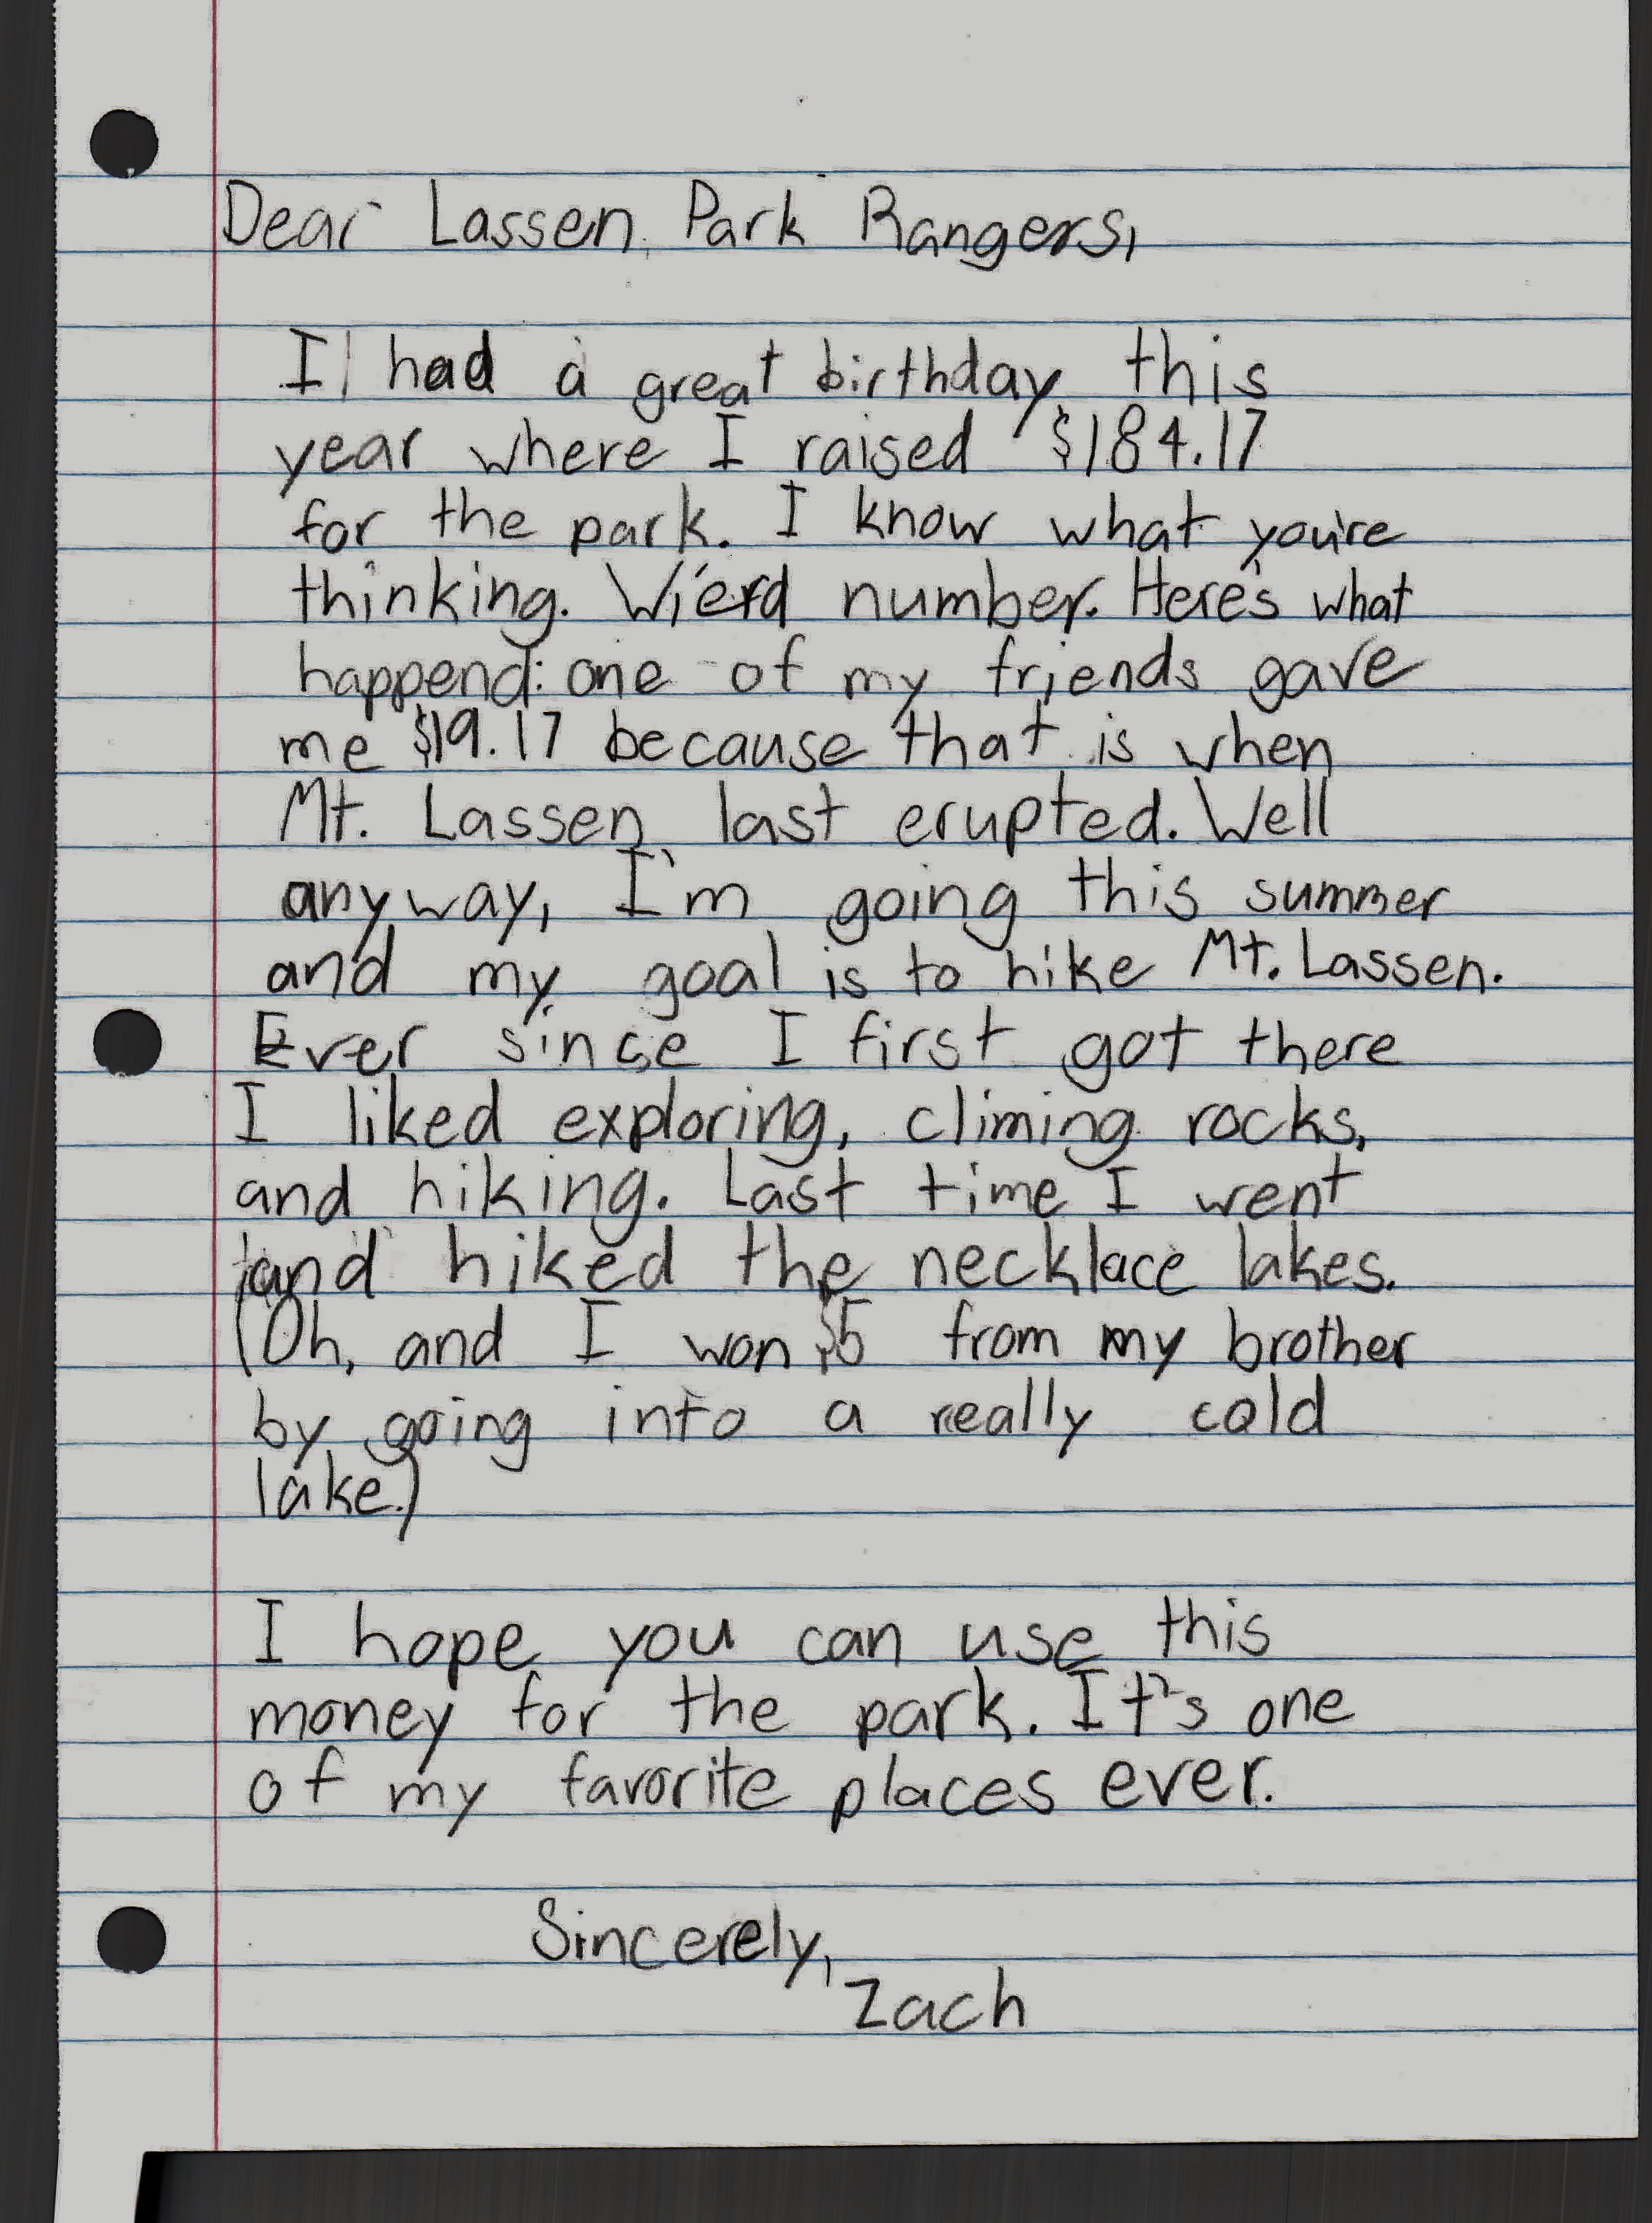 Dear Lassen Park Rangers,
I had a great birthday this
year where I raised $184.17
for the park. I know what you're
thinking. Wierd number. Here's what
happend: one of my friends gave
me $19.17 because that is when
Mt. Lassen last erupted. Well
anyway, I'm going this summer
and my goal is to hike Mt. Lassen.
Ever since I first got there
I liked exploring, climing rocks,
and hiking. Last time I went
and hiked the necklace lakes.
(Oh, and I won $5 from my brother
by going into a really cold
lake.)
I hope you can use this
money for the park. It's one
of my favorite places ever.
Sincerely,
Zach